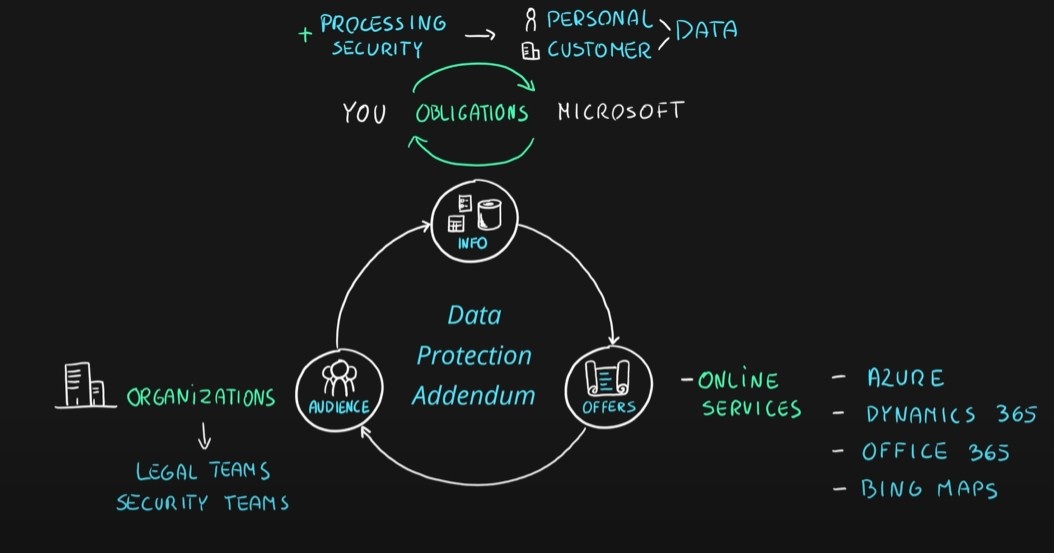 + PROCESSING
SECURITY
PERSONAL
CUSTOMER
DATA
YOU OBLIGATIONS MICROSOFT
INFO
Data
Protection
Addendum
ORGANiZATIONS
LEGAL TEAMS
SECURITY TEAMS
AUDIENCE
OFFERS
- ONLINE
SERVICES
- AZURE
- DYNAMICS 365
- OFFICE 365
- BING MAPS